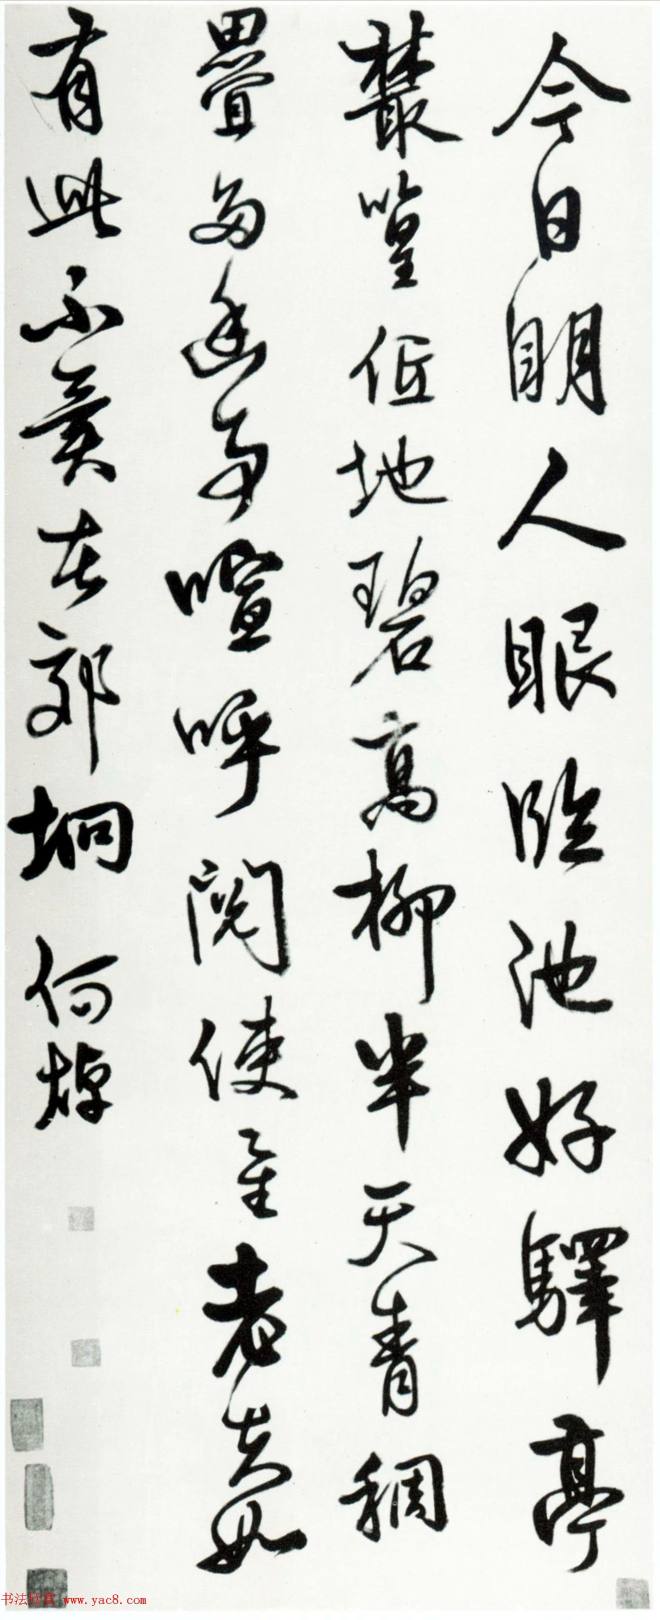 今日明人眼臨池好驛亭
叢篁低地碧高柳半天青稠
疊多幽事喧呼閱使星老夫如
有此不異在郊坰 何焯
书法欣赏 www.yac8.com